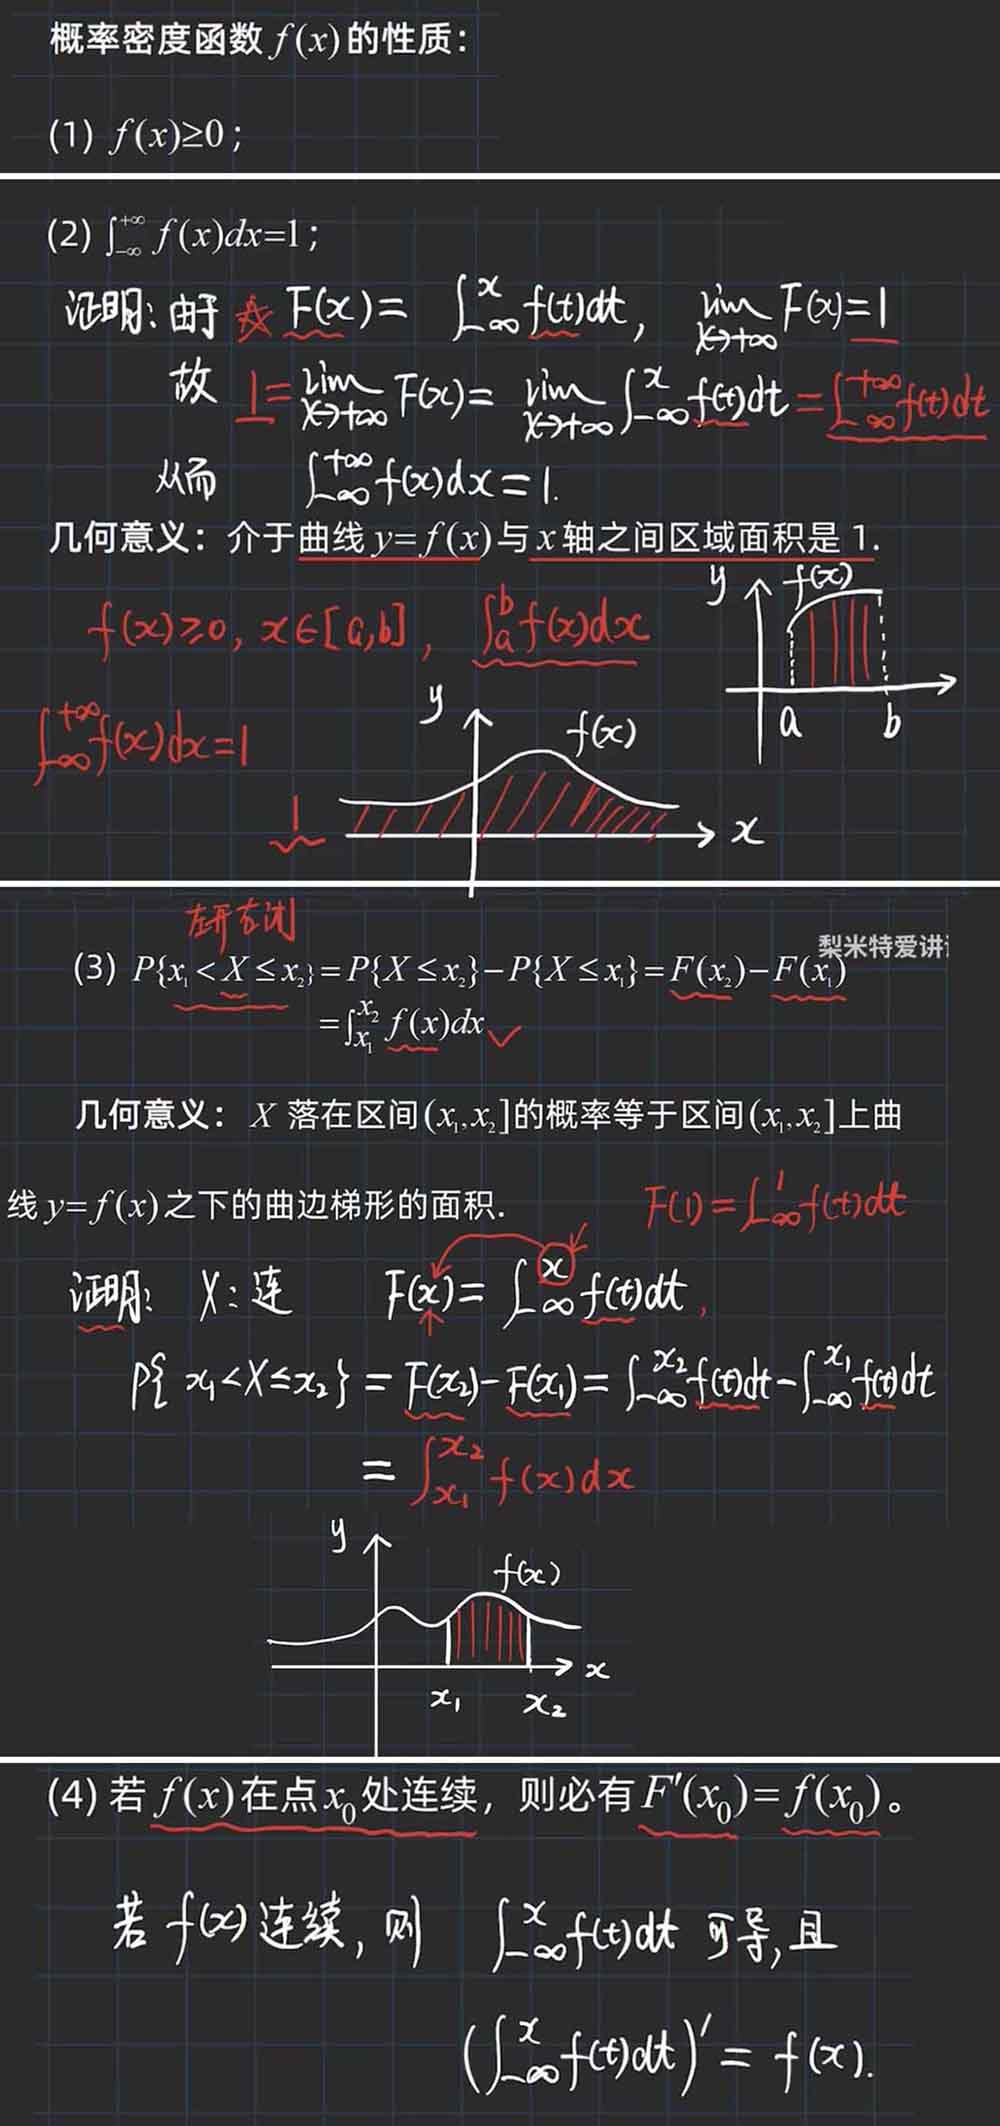 概率密度函数 f(x) 的性质：
(1) f(x)≥0；
(2) ∫_{-∞}^{+∞} f(x)dx=1；
证明：由于 ☆ F(x) = ∫_{-∞}^{x} f(t)dt, lim_{x→+∞} F(x)=1
故 1 = lim_{x→+∞} F(x) = lim_{x→+∞} ∫_{-∞}^{x} f(t)dt = ∫_{-∞}^{+∞} f(t)dt
从而 ∫_{-∞}^{+∞} f(x)dx = 1.
几何意义：介于曲线 y=f(x) 与 x 轴之间区域面积是 1.
f(x)≥0, x∈[a,b], ∫_{a}^{b} f(x)dx
y f(x)
a b
∫_{-∞}^{+∞} f(x)dx=1
y f(x)
1
x
左开右闭
梨米特爱讲
(3) P{x₁<X≤x₂}=P{X≤x₂}−P{X≤x₁}=F(x₂)−F(x₁)
=∫_{x₁}^{x₂} f(x)dx
几何意义： X 落在区间(x₁,x₂]的概率等于区间(x₁,x₂]上曲
线 y=f(x)之下的曲边梯形的面积.
F(1) = ∫_{-∞}^{1} f(t)dt
证明： X：连 F(x) = ∫_{-∞}^{x} f(t)dt,
P{x₁<X≤x₂} = F(x₂)−F(x₁) = ∫_{-∞}^{x₂} f(t)dt − ∫_{-∞}^{x₁} f(t)dt
= ∫_{x₁}^{x₂} f(x)dx
y
f(x)
x
x₁ x₂
(4) 若 f(x) 在点 x₀ 处连续，则必有 F′(x₀)=f(x₀)。
若 f(x) 连续, 则 ∫_{-∞}^{x} f(t)dt 可导, 且
(∫_{-∞}^{x} f(t)dt)′ = f(x).